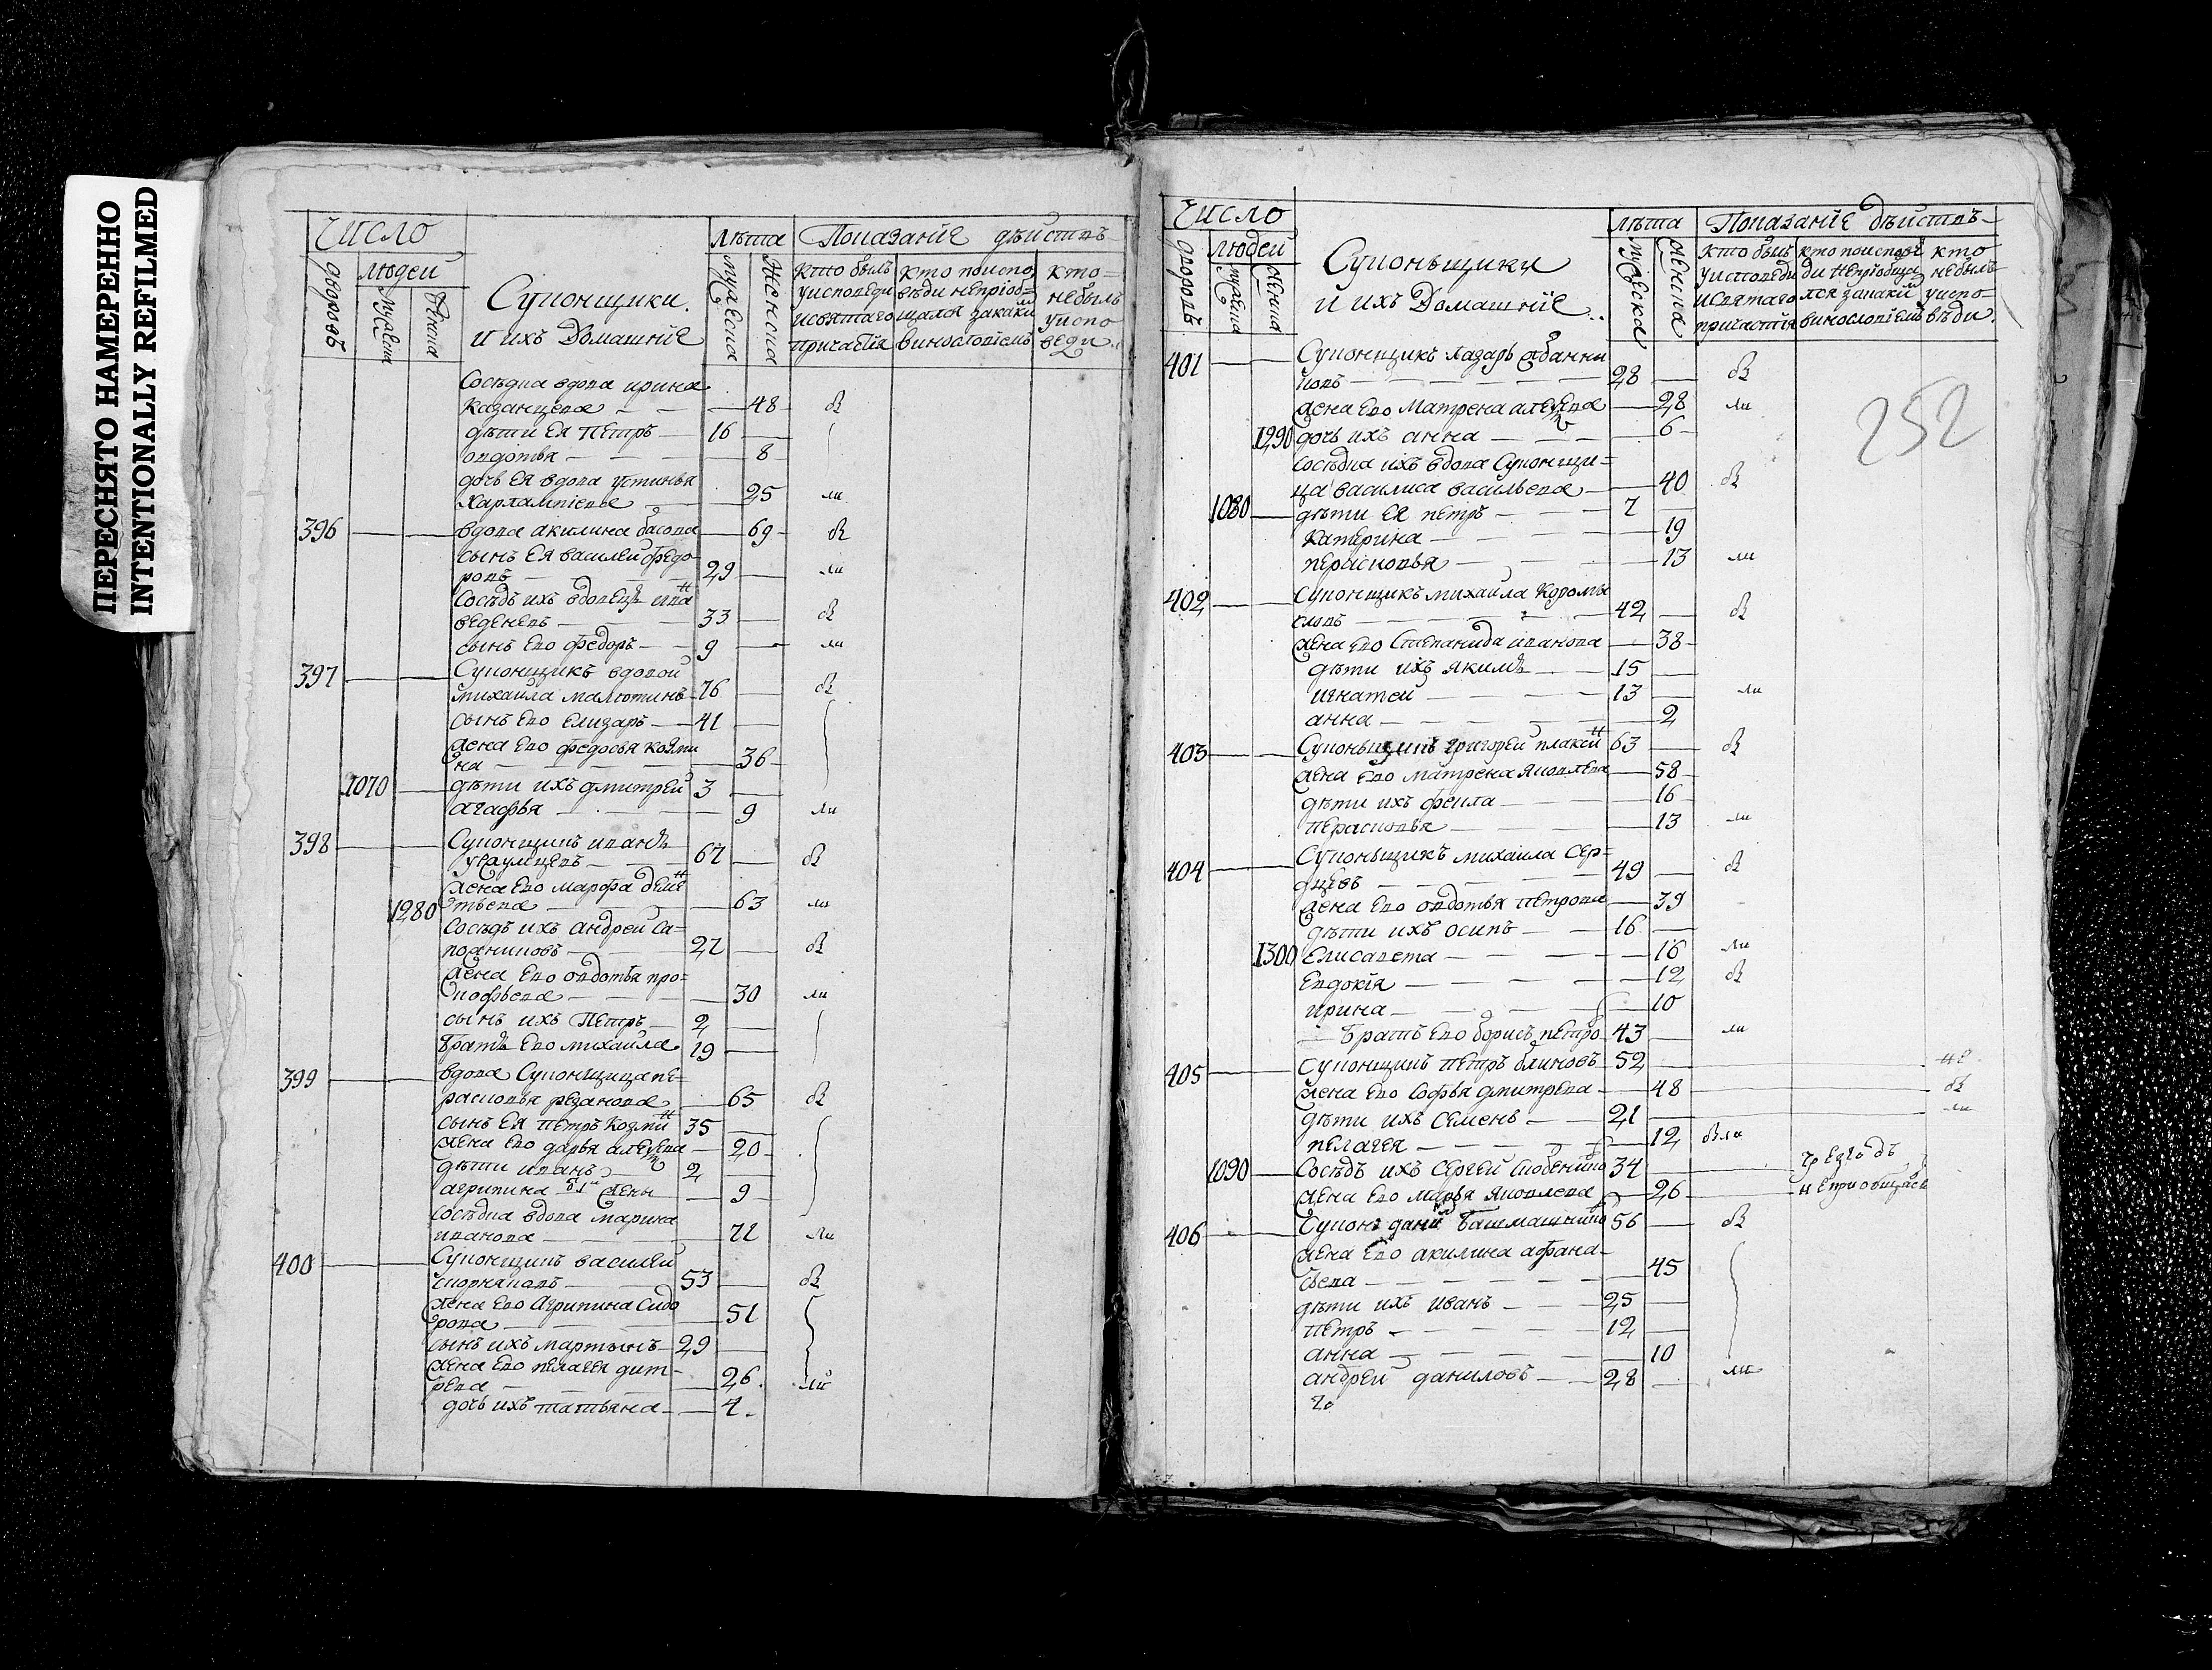 ПЕРЕСНЯТО НАМЕРЕННО
INTENTIONALLY REFILMED
Число
людей
лѣта
Показаніе дѣиствъ
дворовъ
мужеска
женска
Суконщики
и ихъ Домашніе
мужеска
женска
кто былъ
уисповеди
исвятаго
причастія
кто поиспо
вѣди непріоб=
щалсѧ закаким
винословіемъ
кто
небылъ
уиспо
веди
Сосѣдка вдова ирина
казанцева 48 бы
дѣти ея Петръ 16
овдотья 8
дочь ея вдова устинья
Харлампіева 25 ли
396 вдова акилина басова 69 бы
сынъ ея василеи Федо
ровъ 29 ли
Сосѣдъ ихъ вдовецъ иван
веденевъ 33 бы
сынъ ево Федоръ 9 ли
397 Суконщикъ вдовой
михаила малютинъ 76 бы
сынъ ево Елизаръ 41
жена ево федосья козми
на 36
1070 дѣти ихъ дмитреи 3
агафья 9 ли
398 Суконщикъ иванъ
67 бы
жена ево марфа демен
1280 тьева 63 ли
Сосѣдъ ихъ андреи са=
пожниковъ 27 бы
жена ево овдотья про=
кофьева 30 ли
сынъ ихъ Петръ 2
братъ ево михаила 19
399 вдова Суконщица пе=
расковья резанова 65 бы
сынъ ея петръ козмин 35
жена ево дарья алеѯеева 20
дѣти иванъ 2
агрипина жены 9
сосѣдка вдова марина
иванова 72 ли
400 Суконщикъ василеи
скорняковъ 53 бы
жена ево Агрипина сидо
рова 51
сынъ ихъ мартынъ 29
жена ево пелагея дмит=
рева 26 ли
дочь ихъ татьяна 4
Число
людей
лѣта
Показаніе дѣиствъ
дворовъ
мужеска
женска
Суконьщики
и ихъ Домашніе
мужеска
женска
кто былъ
уисповеди
исвятаго
причастія
кто поиспове
ди непріобща
лся закаким
винословіемъ
кто
небылъ
уиспо=
вѣди
252
401 Суконщикъ лазарь
ковъ 28 бы
жена ево Матрена алеѯеева 28 ли
1290 дочь ихъ анна 6
Сосѣдка ихъ вдова Суконщи=
ца василиса васильева 40 бы
1080 дѣти ея петръ 7
Катерина 19
перасковья 13 ли
402 Суконщикъ михаила Коромы
словъ 42 бы
жена ево Степанида иванова 38
дѣти ихъ якимъ 15
игнатеи 13 ли
анна 2
403 Суконьщикъ григореи плаксин 63 бы
жена ево матрена яковлева 58
дѣти ихъ фекла 16
перасковья 13 ли
404 Суконьщикъ михаила Сер=
дцевъ 49 бы
жена ево овдотья петрова 39
дѣти ихъ осипъ 16
1300 Елисавета 16 ли
Евдокія 12 бы
ирина 10
братъ ево борисъ петро 43 ли
405 Суконщикъ петръ блиновъ 52 не
жена ево Софья дмитрева 48 бы
дѣти ихъ Семенъ 21 ли
пелагея 12 были
1090 Сосѣдъ ихъ Сергеи 34
жена ево марья яковлева 26 неприобщас
406 Сукон данил башмашник 56 бы
жена ево акилина афана=
сьева 45
дѣти ихъ иванъ 25
петръ 12
анна 10
андреи даниловъ 28 ли